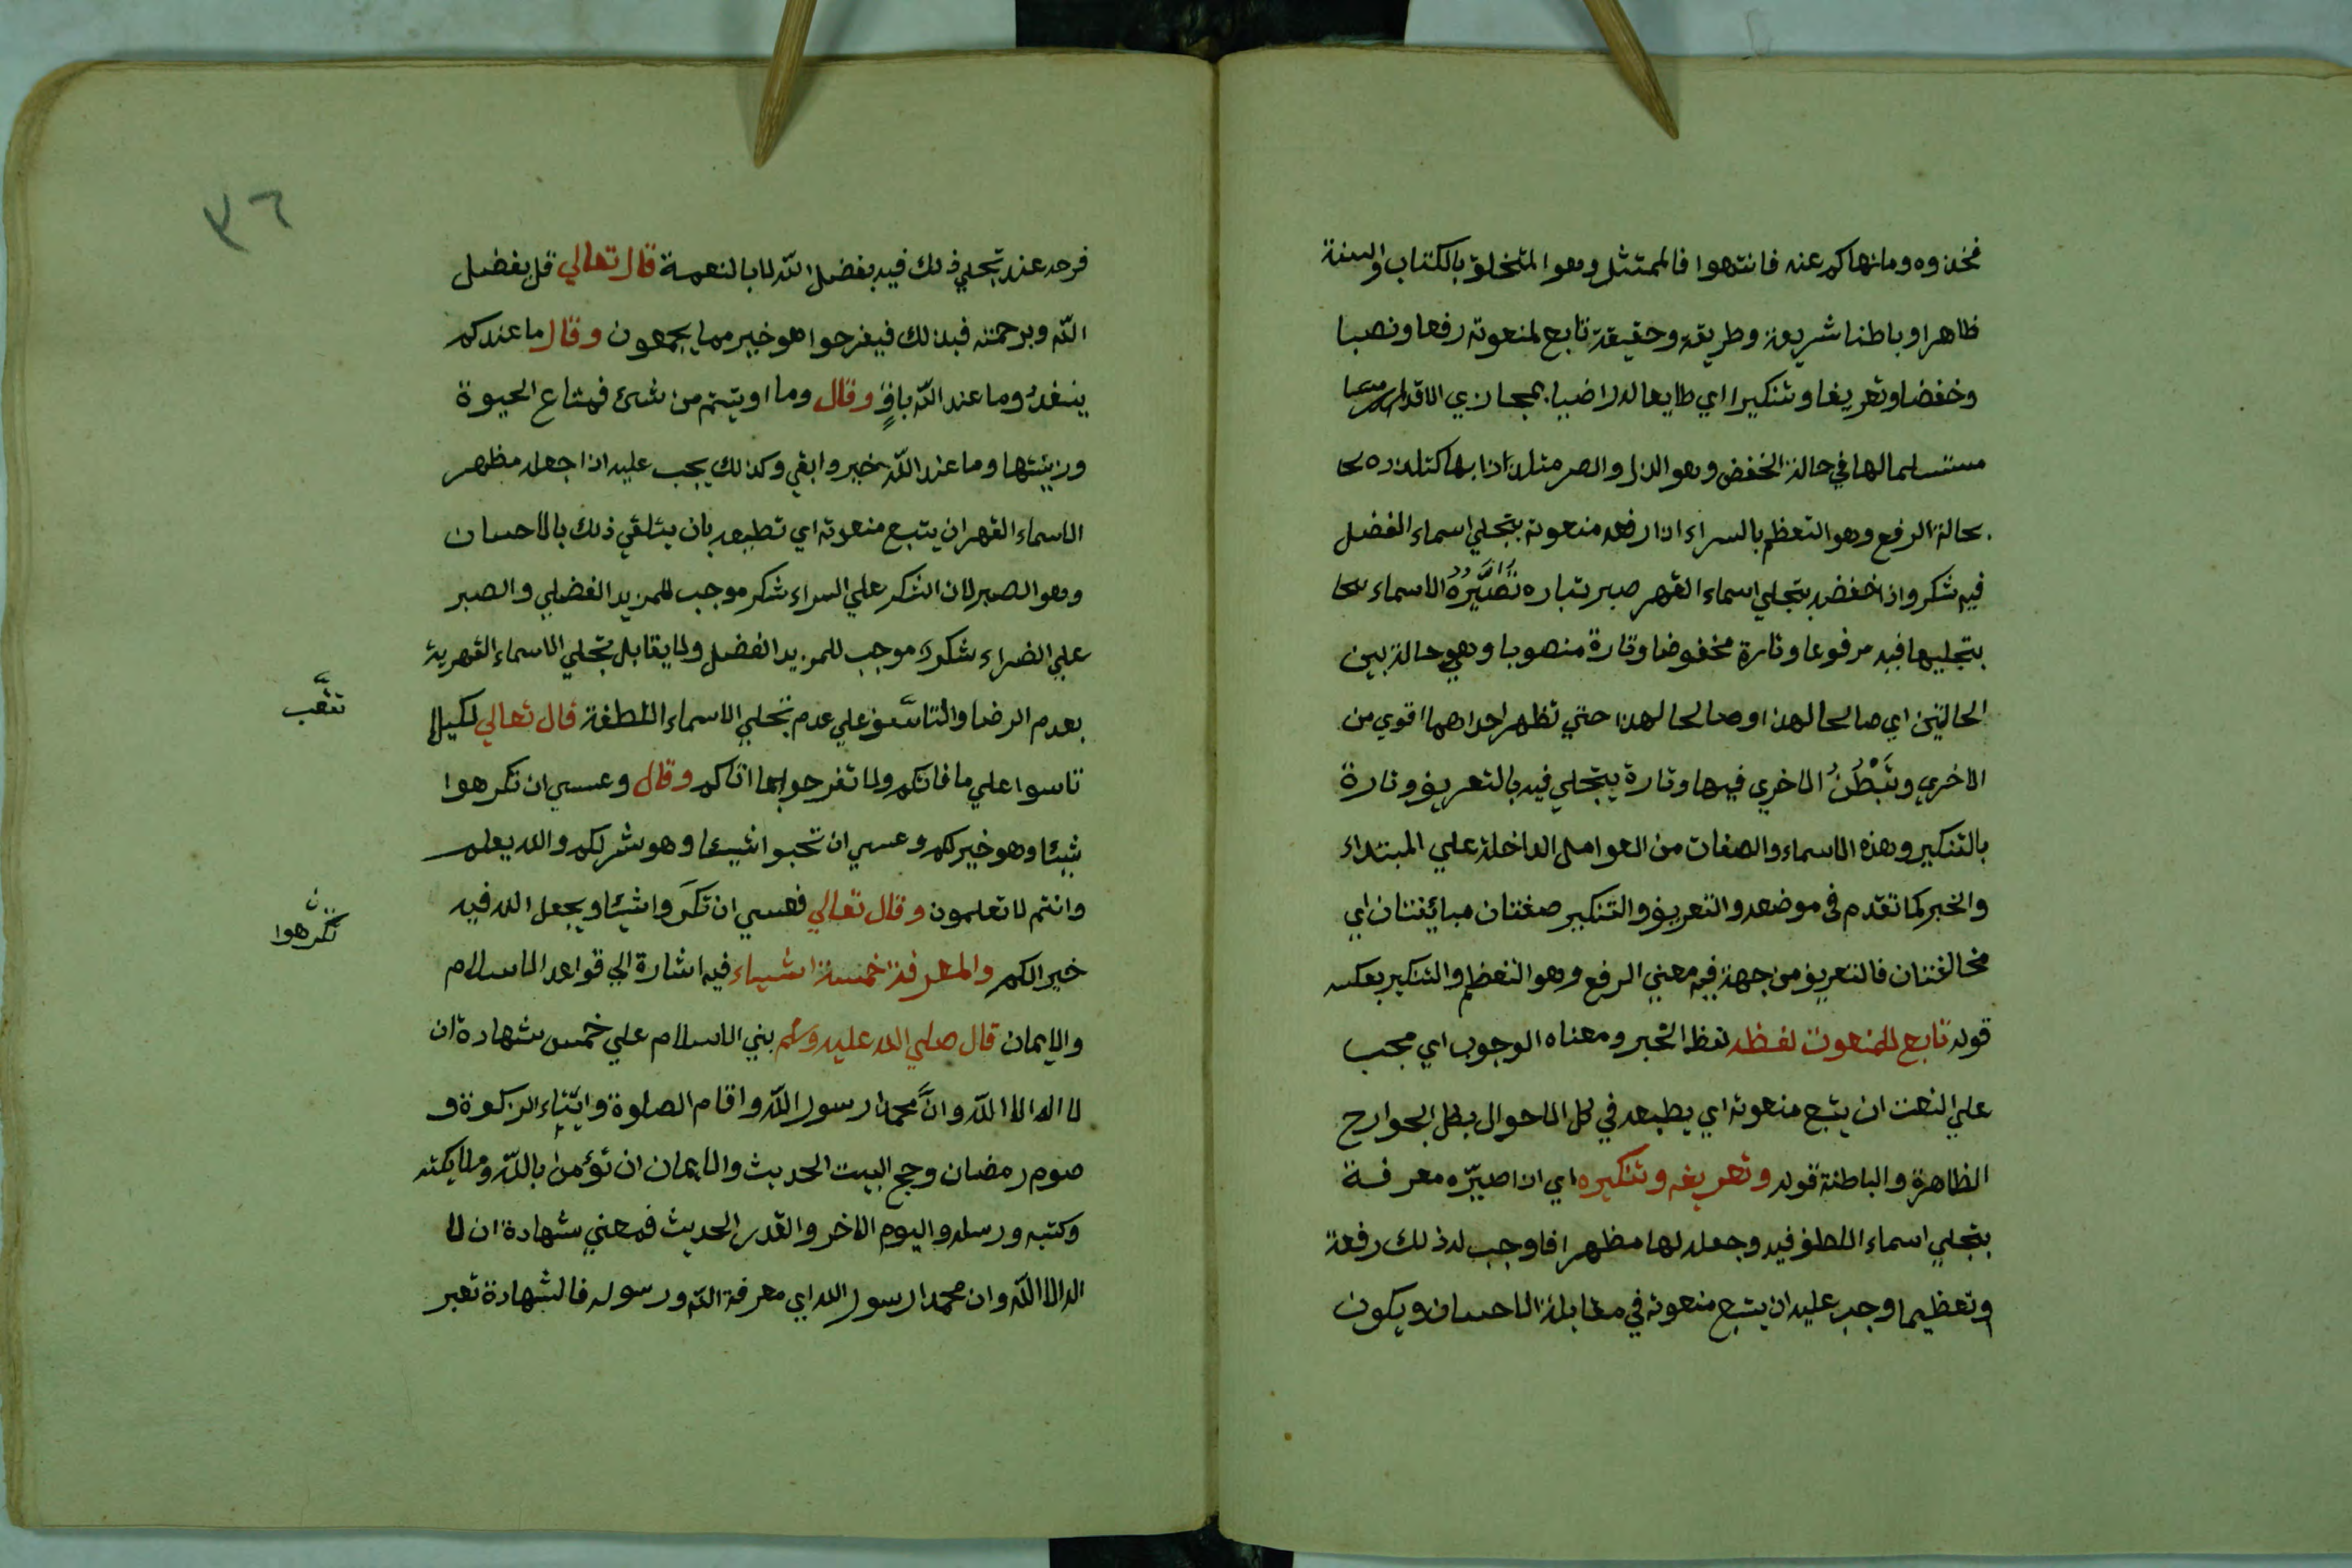 فخذوه وما نهاكم عنه فانتهوا فالممتثل وهو المتخلق بالكتاب والسنة
ظاهرا وباطنا شريعة وطريقة وحقيقة تابع لمنعوته رفعا ونصبا
وخفضا وتعريفا وتنكيرا اي طايعا له راضيا بمجاري الاقدار
مستسلما لها في حالة الخفض وهو الذل والصر متلذذا بها كتلذذه
بحالة الرفع وهو التعظم بالسراء اذا رفعه منعوته بتجلي اسماء الفضل
فيه شكر واذا خفضه بتجلي اسماء القهر صبر تُصَيِّرُهُ الاسماء
بتجليها فيه مرفوعا وتارة مخفوضا وتارة منصوبا وهي حالة بين
الحالتين اي صالحا لهذا وصالحا لهذا حتي تظهر احداهما اقوي من
الاخري وتَبْطُنُ الاخري فيها وتارة يتجلي فيه بالتعريف وتارة
بالتنكير وهذه الاسماء والصفات من العوامل الداخلة علي المبتداء
والخبر كما تقدم في موضعه والتعريف والتنكير صفتان مباينتان اي
مخالفتان فالتعريف من جهة فيه معني الرفع وهو التعظم والتنكير بعكسه
قوله تابع للمنعوت لفظه لفظ الخبر ومعناه الوجوب اي يجب
علي النعت ان يتبع منعوته اي يطيعه في كل الاحوال بكل الجوارح
الظاهرة والباطنة قوله وتعريفه وتنكيره اي اذا صيّره معرفة
بتجلي اسماء اللطف فيه وجعله لها مظهرا فاوجب له ذلك رفعة
وتعظيما وجب عليه ان يتبع منعوته في مقابلة الاحسان ويكون
٣٦
فرحه عند تجلي ذلك فيه بفضل الله لا بالنعمة قال تعالي قل بفضل
الله وبرحمته فبذلك فيفرحوا هو خير مما يجمعون وقال ما عندكم
ينفدُ وما عند الله باقٍ وقال وما اوتيتم من شئ فمتاع الحيوة
وزينتها وما عند الله خير وابقي وكذلك يجب عليه اذا جعله مظهر
الاسماء القهر ان يتبع منعوته اي تطيعه بان يتلقي ذلك بالاحسان
وهو الصبر لان الشكر علي السراء شكر موجب للمزيد الفضلي والصبر
علي الضراء شكرا موجب للمزيد الفضل ولا يقابل تجلي الاسماء القهرية
بعدم الرضا والتاسَّف علي عدم تجلي الاسماء اللطفة قال تعالي لكيلا
تاسوا علي ما فاتكم ولا تفرحوا بما اتاكم وقال وعسي ان تكرهوا
شيئا وهو خير لكم وعسي ان تحبوا شيئا وهو شر لكم والله يعلم
وانتم لا تعلمون وقال تعالي فعسي ان تكَروا شيئا ويجعل الله فيه
تكرهوا
خيرا لكم والمعرفة خمسة اشياء فيه اشارة الي قواعد الاسلام
والايمان قال صلي الله عليه وسلم بني الاسلام علي خمس شهادة ان
لا اله الا الله وانَّ محمدا رسول الله واقام الصلوة وايتاء الزكوة و
صوم رمضان وحج البيت الحديث والايمان ان تؤمن بالله وملايكته
وكتبه ورسله واليوم الاخر والقدر الحديث فمعني شهادة ان لا
اله الا الله وان محمدا رسول الله اي معرفة الله ورسوله فالشهادة تعبر